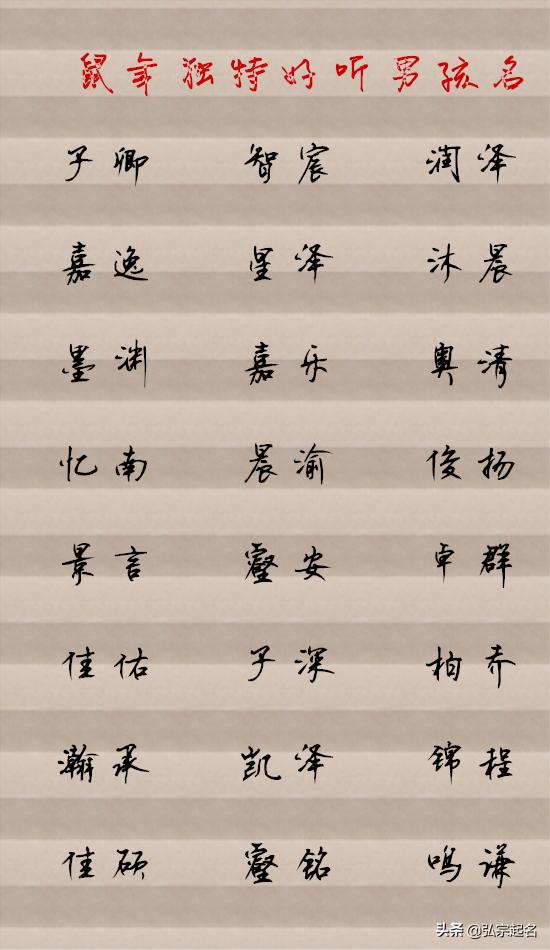 鼠年独特好听男孩名
子卿 智宸 润泽
嘉逸 星泽 沐晨
墨渊 嘉乐 奥清
忆南 晨渝 俊扬
景言 壑安 卓群
佳佑 子深 柏乔
瀚承 凯泽 锦程
佳硕 壑铭 鸣谦
头条 @弘宗起名